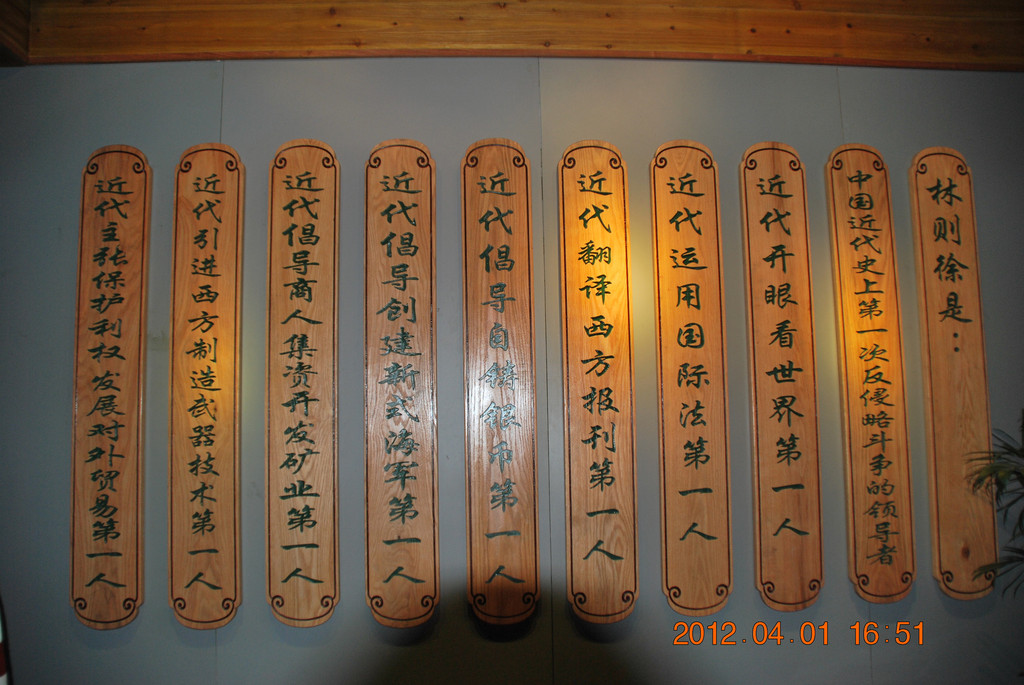 林则徐是：
中国近代史上第一次反侵略斗争的领导者
近代开眼看世界第一人
近代运用国际法第一人
近代翻译西方报刊第一人
近代倡导自铸银币第一人
近代倡导创建新式海军第一人
近代倡导商人集资开发矿业第一人
近代引进西方制造武器技术第一人
近代主张保护利权发展对外贸易第一人
2012.04.01 16:51